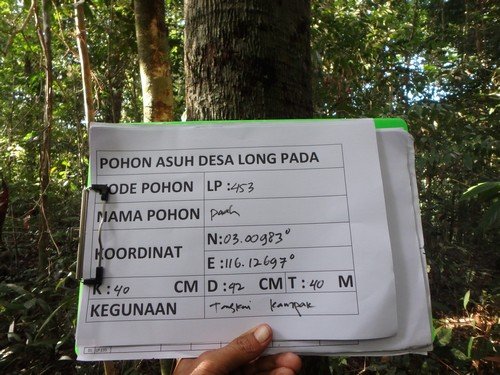 POHON ASUH DESA LONG PADA
KODE POHON LP :453
NAMA POHON
KOORDINAT N:03.00983°
E :116.12697°
K : 40 CM D : 42 CM T : 40 M
KEGUNAAN Tangkai kampak